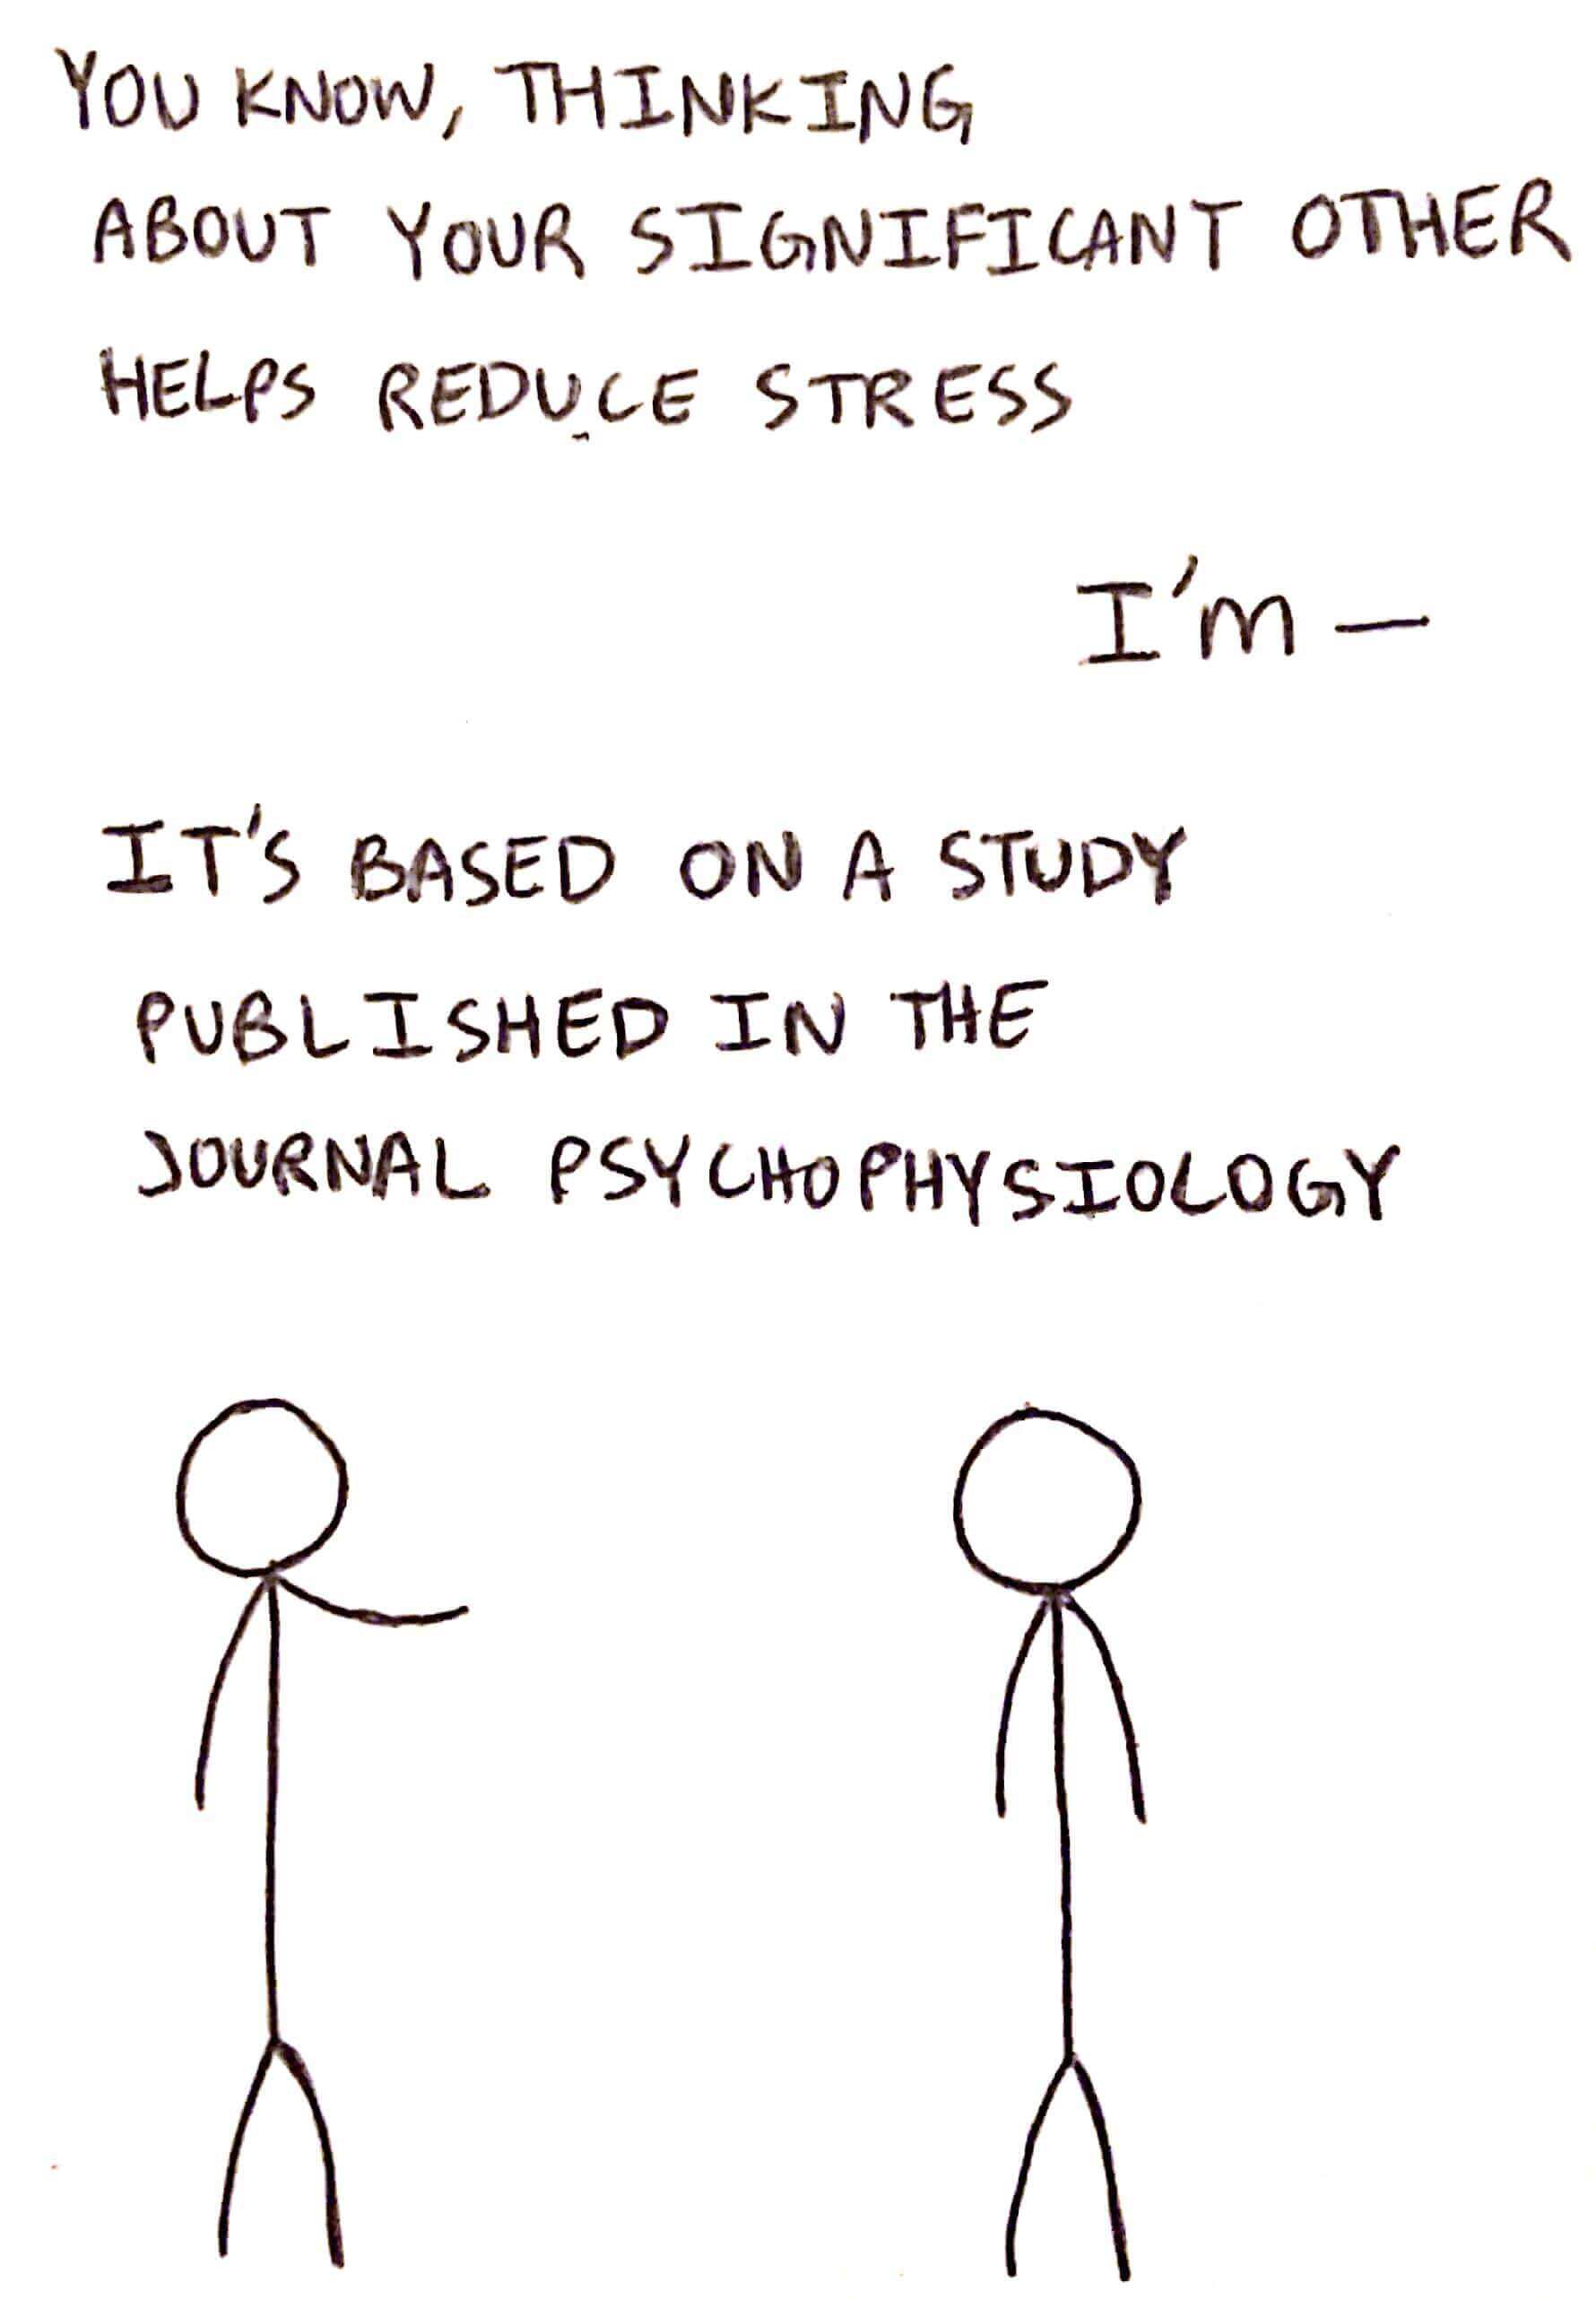 YOU KNOW, THINKING
ABOUT YOUR SIGNIFICANT OTHER
HELPS REDUCE STRESS
I'm —
IT'S BASED ON A STUDY
PUBLISHED IN THE
JOURNAL PSYCHOPHYSIOLOGY